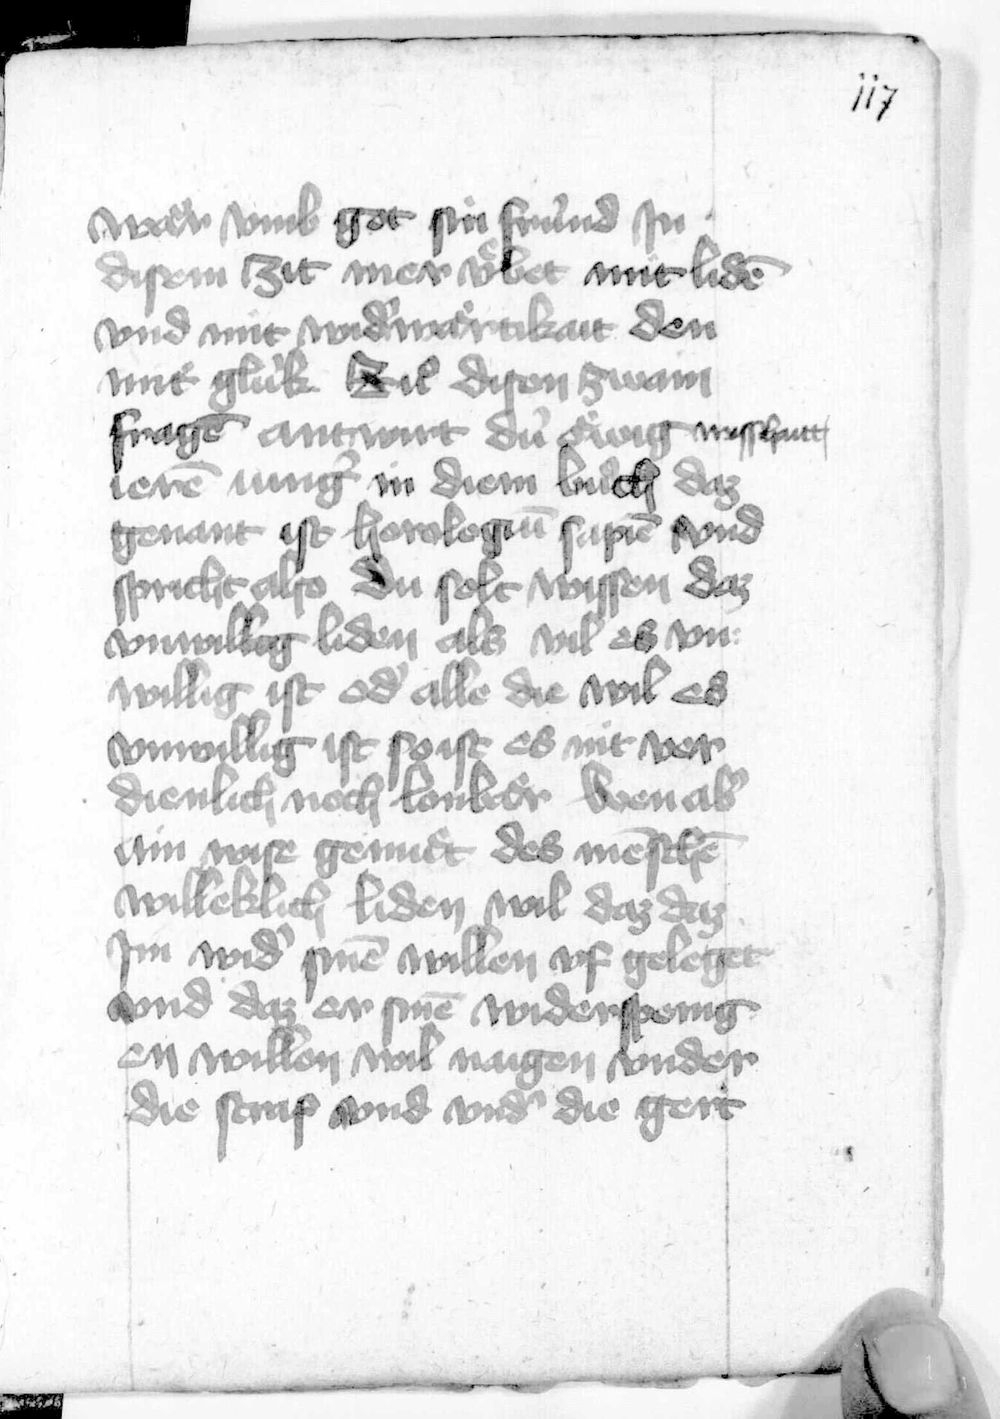 117
war vmb got sin fruͤnd In
disem zit mer uͤbet mit lidē
vnd mit wid'waͤrtikait den
mit gluͤk Zil disen zwain
fragē antwurt duͤ eͤwig wisshaitt
ierē iung' in diem buͦch daz
genant ist horologiū sapiē vnd
spricht also Du solt wissen daz
vnwillig liden als vil es vn:
willig ist od' alle die wil es
vnwillig ist so ist es nit ver
dienlich noch lonbaͤr Wen ab'
ain wise gemuͤt des mēschē
willeklich liden wil daz daz
Im wid' sinē willen vf geleget
vnd daz er sinē widerspenig
en willen wil naigen vnder
die straf vnd vnd' die gert